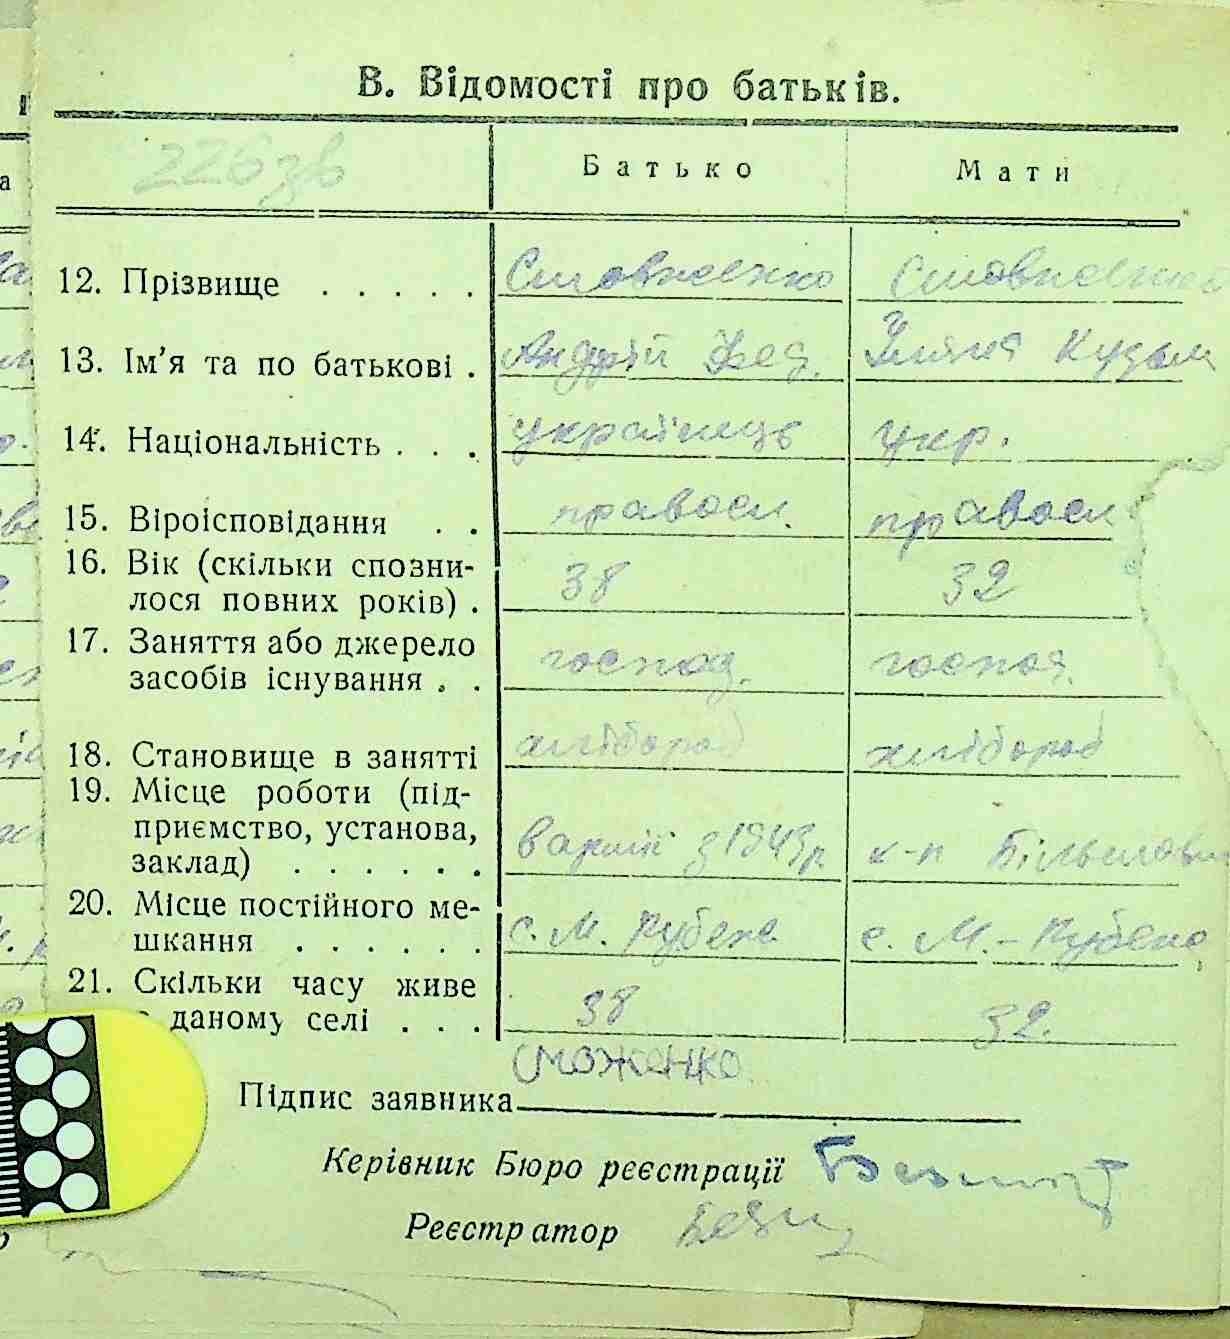 В. Відомості про батьків.
226 зв
Батько Мати
12. Прізвище . . . . .
13. Ім'я та по батькові . Андрій Фед. Уляна Кузьм
14. Національність . . . українець укр.
15. Віроісповідання . . правосл. правосл
16. Вік (скільки спозни-
лося повних років) . 38 32
17. Заняття або джерело
засобів існування . . господ. господ.
18. Становище в занятті хлібороб хлібороб
19. Місце роботи (під-
приємство, установа,
заклад) . . . . . . в армії з 1943 р к-п Більшовик
20. Місце постійного ме-
шкання . . . . . . с. М. Рубана с. М.-Рубана
21. Скільки часу живе
даному селі . . . 38 32.
Підпис заявника
Керівник Бюро реєстрації
Реєстратор